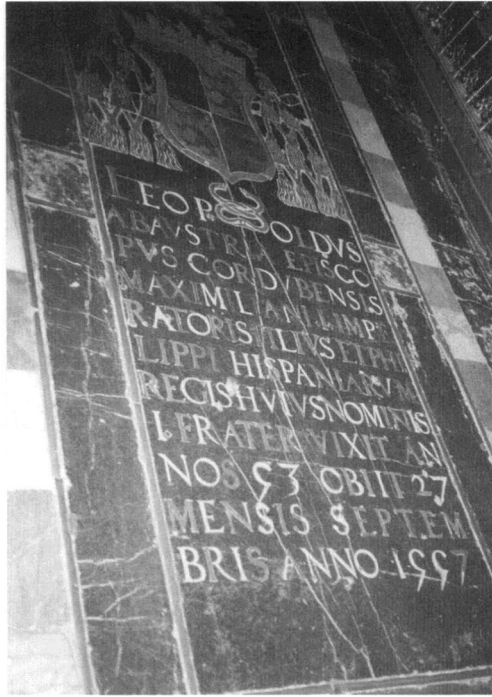 LEOPOLDVS
ABAVSTRIA EPISCO
PVS CORDVBENSIS
MAXIMILIANI I. IMPE
RATORIS FILIVS ET PHI
LIPPI HISPANIARVM
REGIS HVIVS NOMINIS
I. FRATER VIXIT AN
NOS 53 OBIIT 27
MENSIS SEPTEM
BRIS ANNO 1557